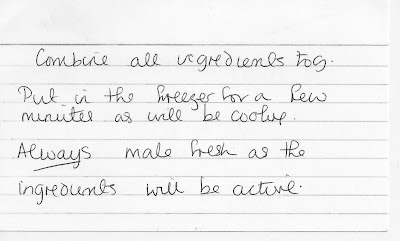 Combine all ingredients tog.
Put in the freezer for a few
minutes as will be cooling.
Always make fresh as the
ingredients will be active.